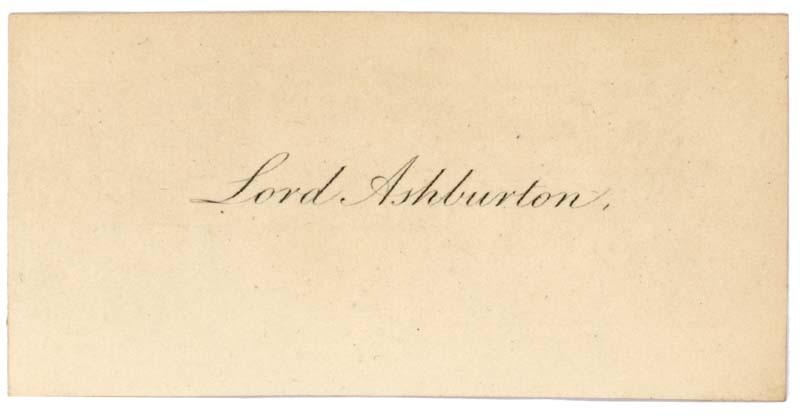 Lord Ashburton.